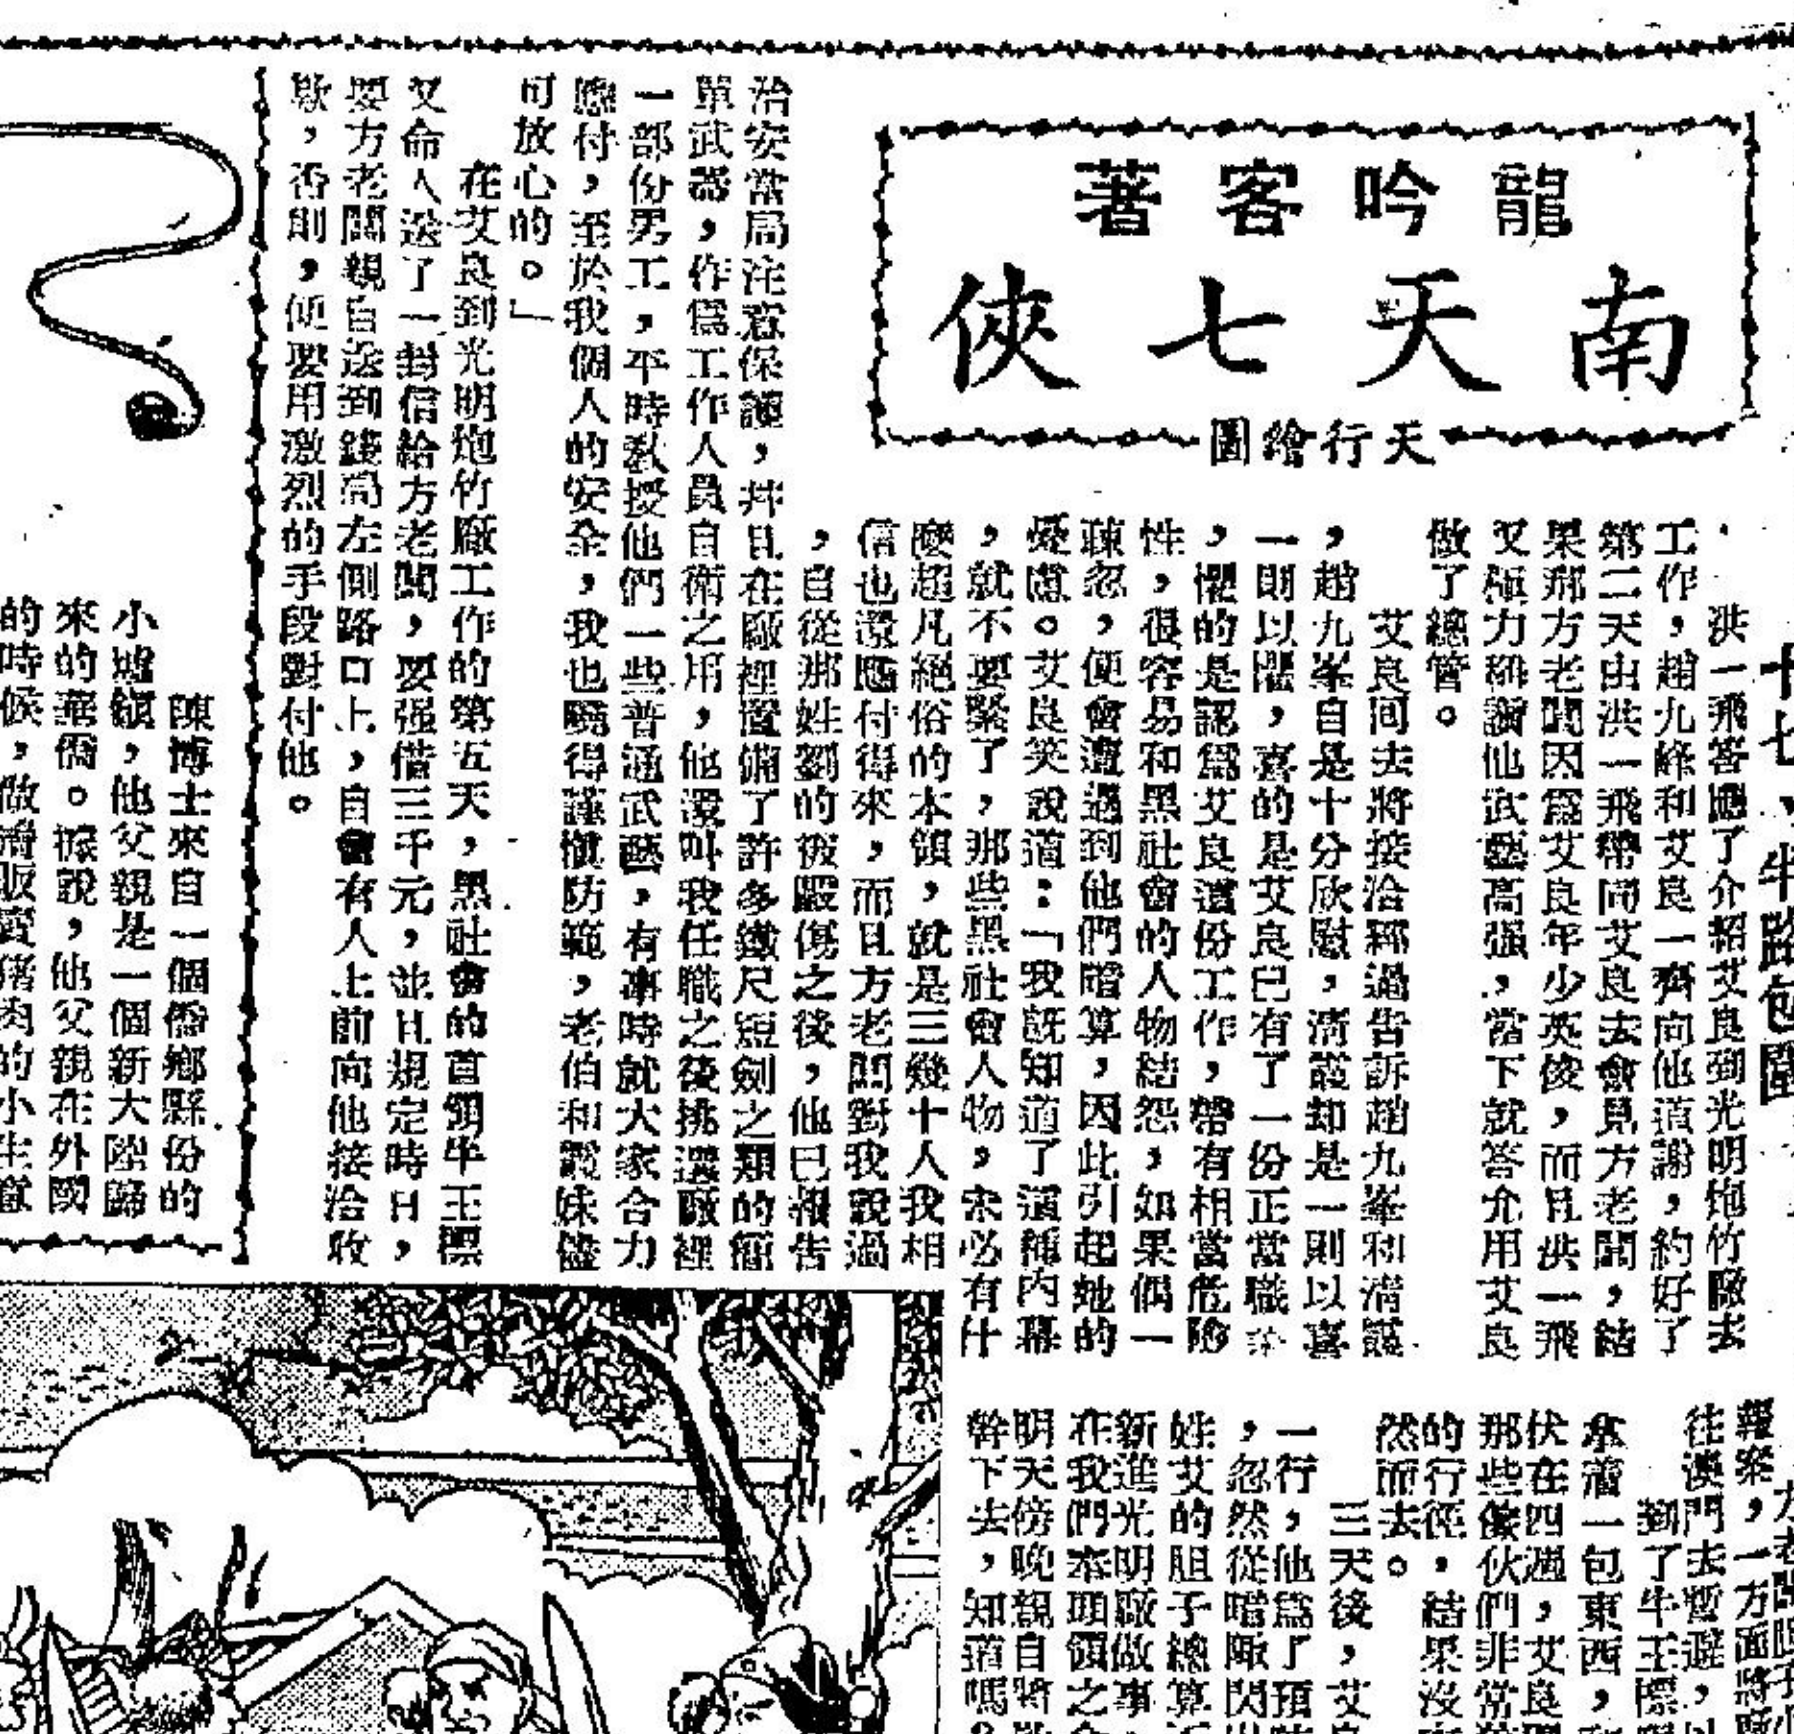 龍吟客著
南天七俠
天行繪圖
十七，半路包圍
洪一飛答應了介紹艾良到光明炮竹廠去
工作，趙九峰和艾良一齊向他道謝，約好了
第二天由洪一飛帶同艾良去會見方老闆，結
果那方老闆因爲艾良年少英俊，而且洪一飛
又極力稱讚他武藝高强，當下就答允用艾良
做了總管。
艾良囘去將接洽經過告訴趙九峯和清
，趙九峯自是十分欣慰，清
却是一則以喜
一則以懼，喜的是艾良已有了一份正當職業
，懼的是認爲艾良這份工作，帶有相當危險
性，很容易和黑社會的人物結怨，如果偶一
疎忽，便會遭遇到他們暗算，因此引起她的
憂慮。艾良笑說道：「我旣知道了這種內幕
，就不要緊了，那些黑社會人物，未必有什
麽超凡絕俗的本領，就是三幾十人我相
信也還應付得來，而且方老闆對我說過
，自從那姓劉的被毆傷之後，他已報告
治安當局注意保護，幷且在廠裡置備了許多鐵尺短劍之類的簡
單武器，作爲工作人員自衛之用，他還叫我任職之後挑選廠裡
一部份男工，平時敎授他們一些普通武藝，有事時就大家合力
應付，至於我個人的安全，我也曉得謹愼防範，老伯和
妹儘
可放心的。」
在艾良到光明炮竹廠工作的第五天，黑社會的首領牛王標
又命人送了一封信給方老闆，要强借三千元，並且規定時日，
要方老闆親自送到錢局左側路口上，自會有人上前向他接洽收
欵，否則，便要用激烈的手段對付他。
陳博士來自一個僑鄉縣份的
小墟鎭，他父親是一個新大陸歸
來的華僑。據說，他父親在外國
的時候，做着販賣豬肉的小生意
報案，一方面將
往澳門去暫避，以
到了牛王標
拿着一包東西，
伏在四週，艾良
那些傢伙們非常
的行徑，結果沒
然而去。
三天後，艾
一行，他爲了預
，忽然從暗陬閃出
姓艾的胆子總算
新進光明廠做事，
在我們本頭領之
明天傍晚親自將
幹下去，知道嗎？